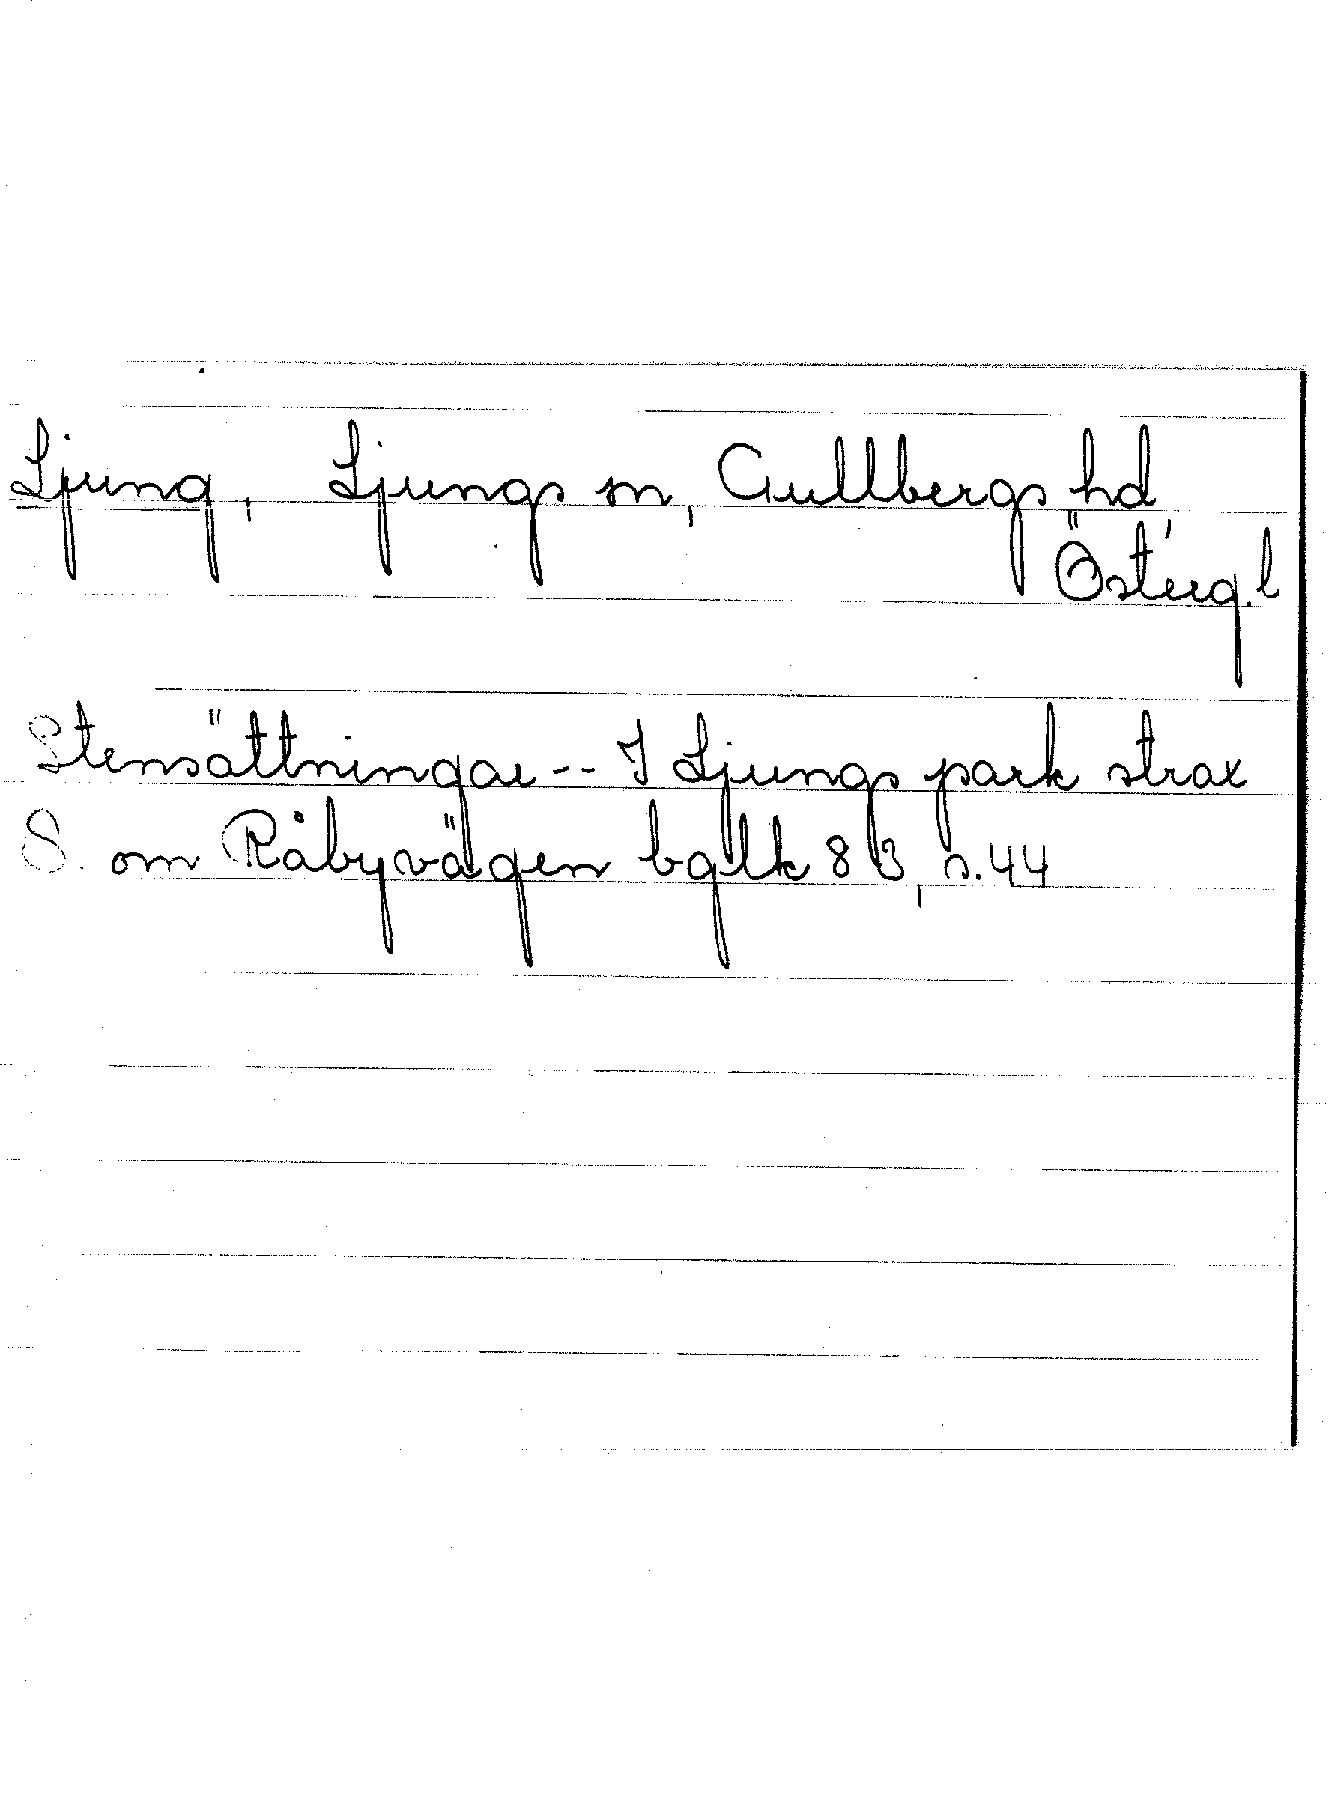 Ljung, Ljungs sn, Gullbergs hd,
Österg. l
Stensättningar -- I Ljungs park strax
S. om Råbyvägen bglk 83, s. 44